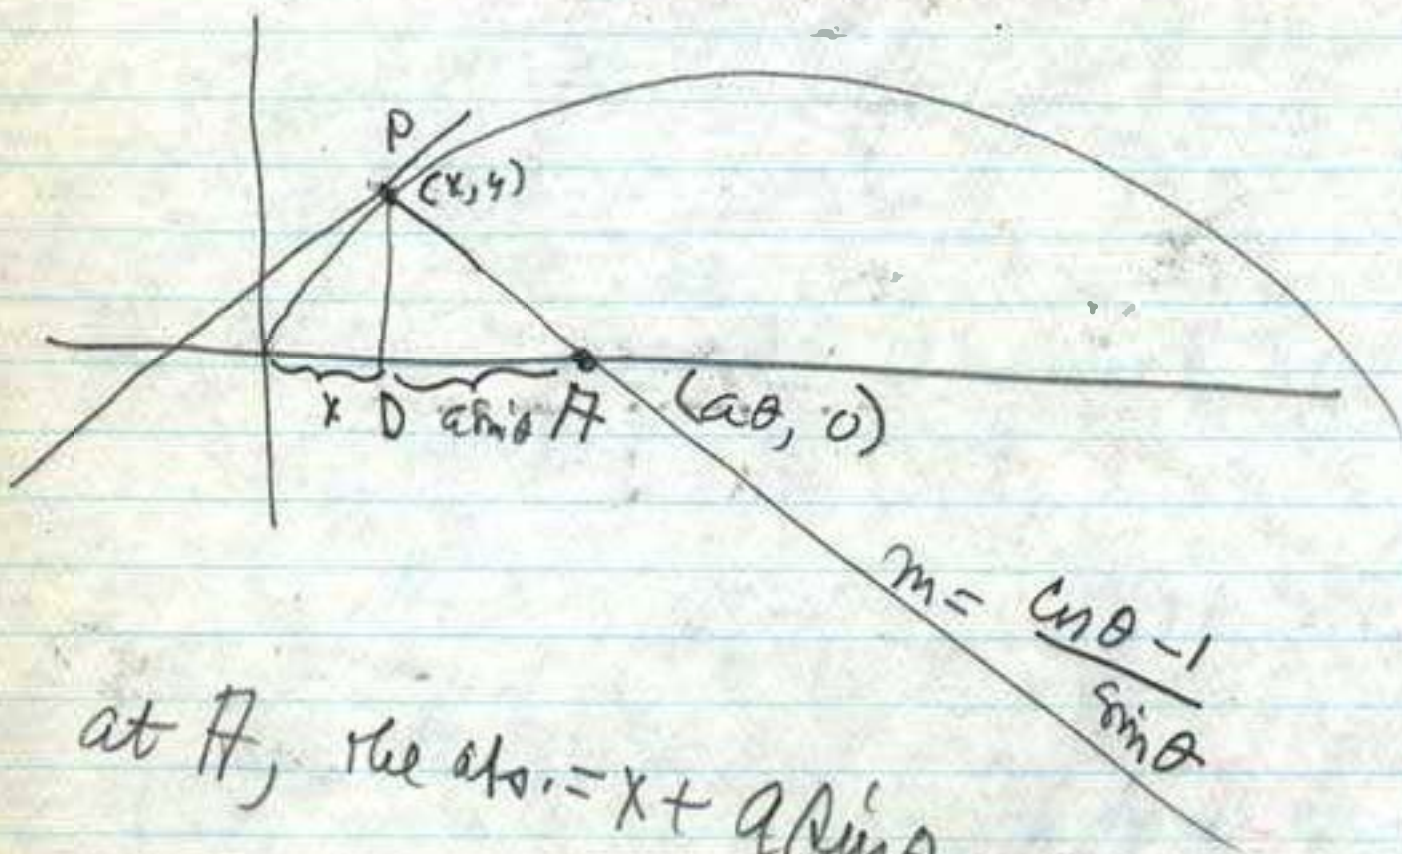 P
(x, y)
x D a sin θ A (aθ, 0)
m = cos θ - 1 / sin θ
at A, the abs. = x + a sin θ